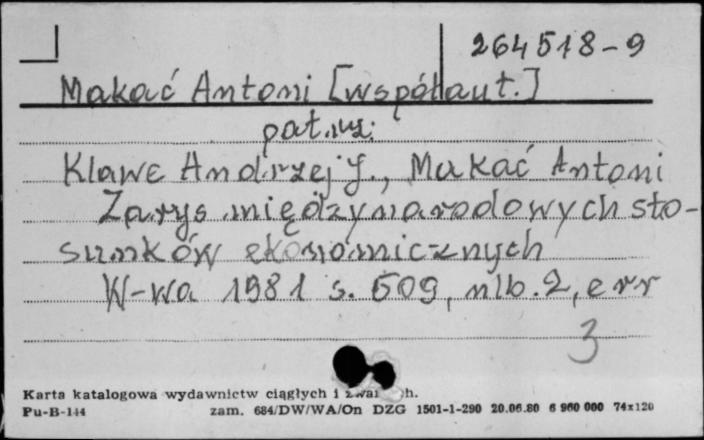 264518-9
Makać Antoni [współaut.]
patrz:
Klawe Andrzej J., Makać Antoni
Zarys międzynarodowych sto-
sunków ekonomicznych
W-wa 1981 s. 509, nlb. 2, err
3
Karta katalogowa wydawnictw ciągłych i
Pu-B-144 zam. 684/DW/WA/On DZG 1501-1-290 20.06.80 6 960 000 74x120